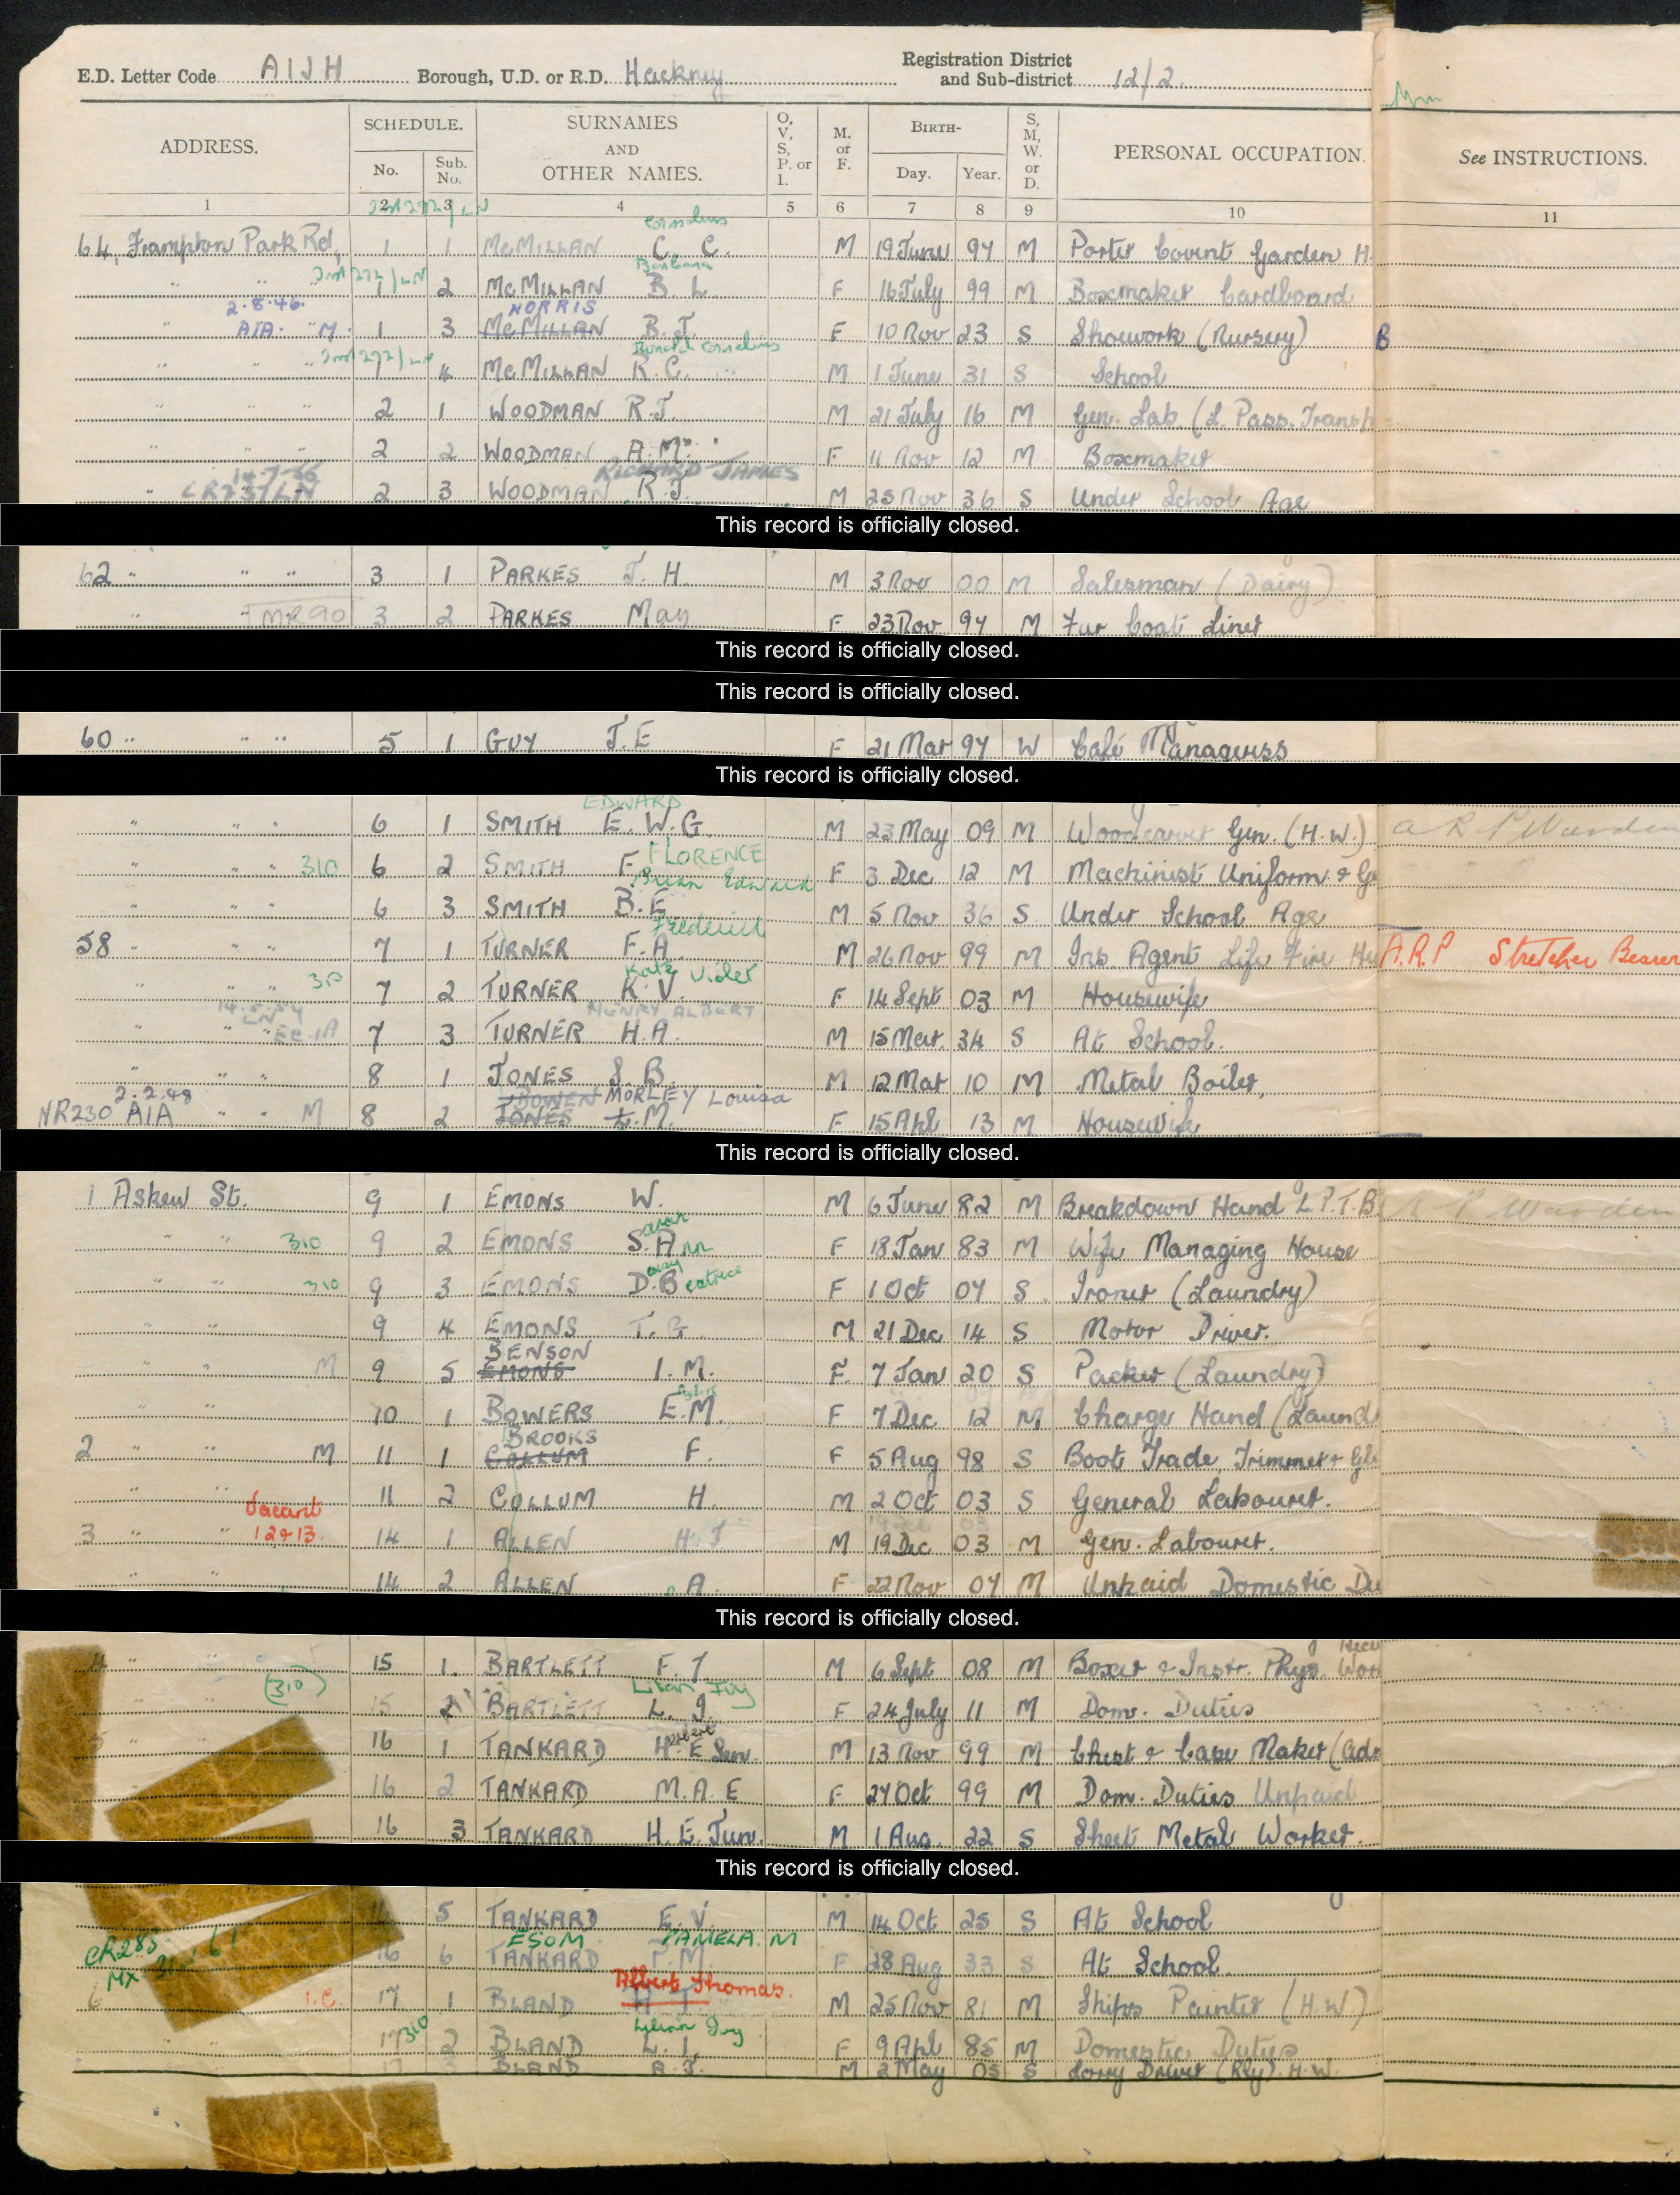 E.D. Letter Code AIJH Borough, U.D. or R.D. Hackney Registration District and Sub-district 12/2.
ADDRESS. SCHEDULE. No. Sub. No. SURNAMES AND OTHER NAMES. O, V, S, P. or I. M. or F. BIRTH- Day. Year. S, M, W. or D. PERSONAL OCCUPATION. See INSTRUCTIONS.
1 2 3 4 5 6 7 8 9 10 11
Cornelius
64, Frampton Park Rd, 1 1 McMILLAN C. C. M 19 June 94 M Porter Covent Garden H
Barbara
" " " 1 2 McMILLAN B. L F 16 July 99 M Boxmaker Cardboard
2.8.46. NORRIS
" AIA. "M. 1 3 McMILLAN B. J. F 10 Nov 23 S Showork (Nursery) B
Ronald Cornelius
" " " 1 4 McMILLAN R.C. M 1 June 31 S School
" " " 2 1 WOODMAN R.J. M 21 July 16 M Gen. Lab. (L. Pass. Transp
" " " 2 2 WOODMAN A.M. F 11 Nov 12 M Boxmaker
14-7-56 RICHARD JAMES
" CR237LN 2 3 WOODMAN R.J. M 25 Nov 36 S Under School Age
This record is officially closed.
62 " " " 3 1 PARKES J. H. M 3 Nov 00 M Salesman (Dairy)
" MR90 3 2 PARKES May F 23 Nov 94 M Fur Coat Liner
This record is officially closed.
This record is officially closed.
60 " " " 5 1 GUY J.E F 21 Mar 94 W Café Manageress
This record is officially closed.
EDWARD
" " " 6 1 SMITH E. W.G. M 23 May 09 M Woodcarver Gen. (H.W.) A R P Warden
FLORENCE
" " " 310 6 2 SMITH F. F 3 Dec 12 M Machinist Uniform & Ge
Brian Edward
" " " 6 3 SMITH B.E. M 5 Nov 36 S Under School Age
Frederick
58 " " " 7 1 TURNER F.A. M 26 Nov 99 M Ins. Agent Life Fire A.R.P Stretcher Bearer
Kate Violet
" " " 310 7 2 TURNER K.V. F 14 Sept 03 M Housewife
14.5.54 LN HENRY ALBERT
" " " EC.1A 7 3 TURNER H.A. M 15 Mar. 34 S At School.
" " " 8 1 JONES S.B. M 12 Mar 10 M Metal Boiler,
2.2.48 BOWEN MORLEY Louisa
NR230 AIA " " M 8 2 JONES L.M. F 15 Apl 13 M Housewife
This record is officially closed.
1 Askew St. 9 1 EMONS W. M 6 June 82 M Breakdown Hand L.P.T.B A R P Warden
" " 310 9 2 EMONS S.arah Ann F 18 Jan 83 M Wife Managing House
" " 310 9 3 EMONS D.aisy Beatrice F 1 Oct 04 S Ironer (Laundry)
" " 9 4 EMONS T.G. M 21 Dec 14 S Motor Driver.
BENSON
" " M 9 5 EMONS I.M. F. 7 Jan 20 S Packer (Laundry)
" " 10 1 BOWERS E.M. F 7 Dec 12 M Charge Hand (Laund
BROOKS
2 " " M 11 1 COLLUM F. F 5 Aug 98 S Boot Trade, Trimmer &
" " 11 2 COLLUM H. M 2 Oct 03 S General Labourer.
Vacant
3 " " 12 & 13. 14 1 ALLEN H.J M 19 Dec 03 M Gen. Labourer.
" " 14 2 ALLEN A. F 22 Nov 04 M Unpaid Domestic Du
This record is officially closed.
4 " " 15 1. BARTLETT F. T M 6 Sept 08 M Boxer & Instr. Phys. Wor
Lilian Ivy
" " (310) 15 2 BARTLETT L. I. F 24 July 11 M Dom. Duties
16 1 TANKARD H. E Sen. M 13 Nov 99 M Chest & Case Maker
16 2 TANKARD M.A.E F 24 Oct 99 M Dom. Duties Unpaid
16 3 TANKARD H.E. Jun. M 1 Aug. 22 S Sheet Metal Worker.
This record is officially closed.
16 5 TANKARD E.V. M 14 Oct 25 S At School
CR283 MX ESOM PAMELA M
16 6 TANKARD P.M. F 28 Aug 33 S At School.
Albert Thomas.
6 I.C. 17 1 BLAND A T. M 25 Nov 81 M Ships Painter (H.W.)
Lilian Ivy
" " 17 310 2 BLAND L.I. F 9 Apl 85 M Domestic Duties
17 3 BLAND A.J. M 2 May 05 S Lorry Driver (Rly). H.W.